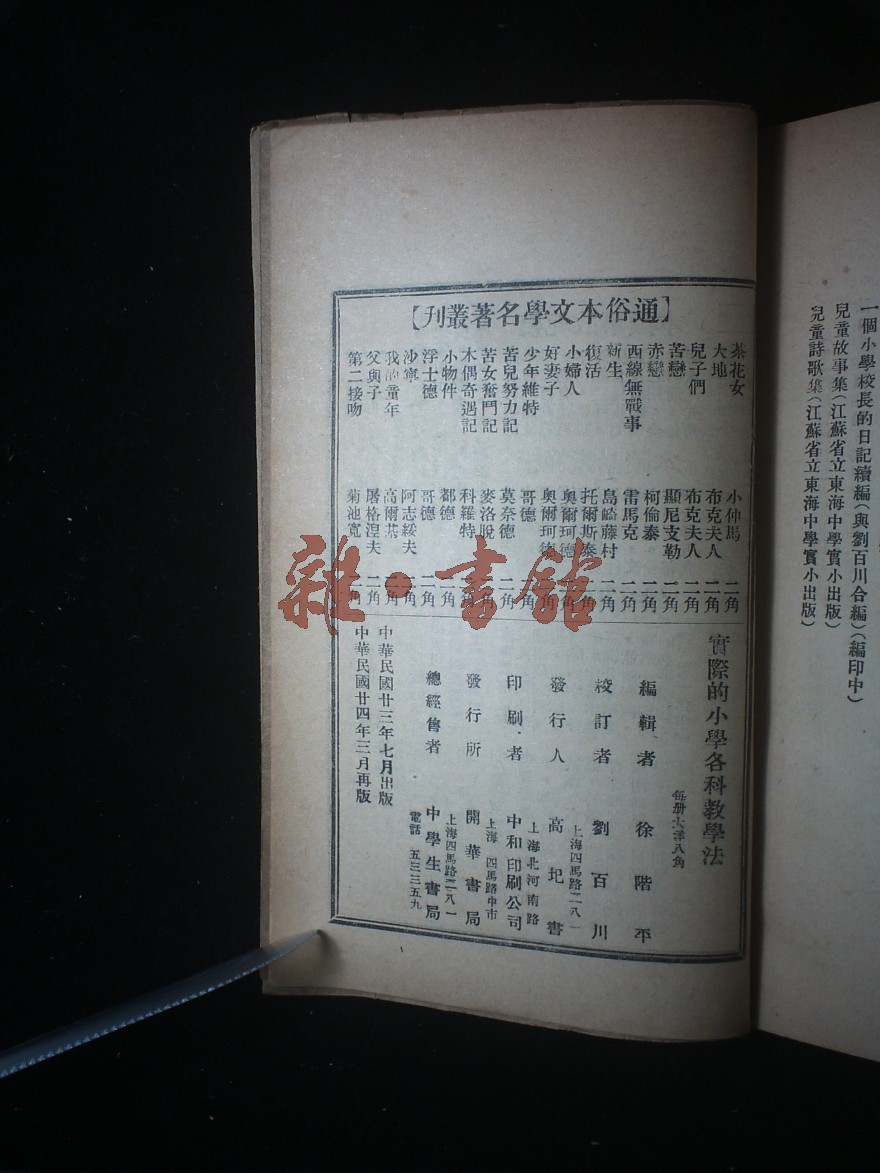 一個小學校長的日記續編(與劉百川合編)(編印中)
兒童故事集(江蘇省立東海中學實小出版)
兒童詩歌集(江蘇省立東海中學實小出版)
【通俗本文學名著叢刊】
茶花女 小仲馬 二角
大地 布克夫人 二角
兒子們 布克夫人 二角
苦戀 顯尼支勒 二角
赤戀 柯倫泰 二角
西線無戰事 雷馬克 二角
新生 島崎藤村 二角
復活 托爾斯泰 二角
小婦人 奧爾珂德 二角
好妻子 奧爾珂德 二角
少年維特 哥德 二角
苦兒努力記 莫奈德 二角
苦女奮鬥記 麥洛脫 二角
木偶奇遇記 科羅特 二角
小物件 都德 二角
浮士德 哥德 二角
沙寧 阿志綏夫 二角
我的童年 高爾基 二角
父與子 屠格涅夫 二角
第二接吻 菊池寬 二角
實際的小學各科教學法
每册大洋八角
編輯者 徐階平
校訂者 劉百川
上海四馬路二八一
發行人 高圯書
上海北河南路
印刷者 中和印刷公司
上海四馬路中市
發行所 開華書局
上海四馬路二八一
總經售者 中學生書局
電話 五三三五九
中華民國廿三年七月出版
中華民國廿四年三月再版
雜·書館